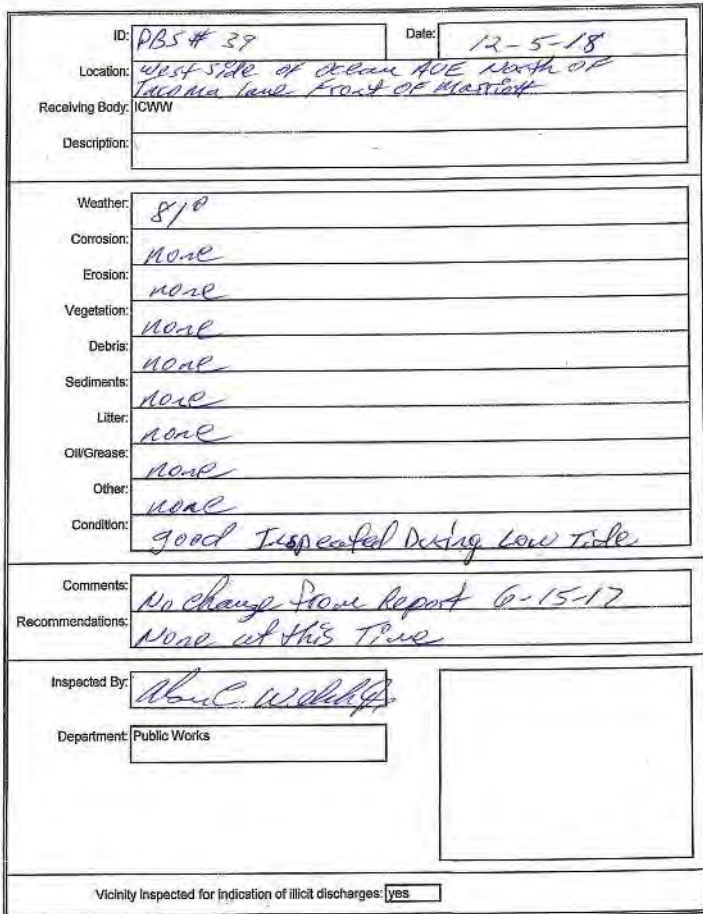 ID: PBS # 39 Date: 12-5-18
Location: West Side of Ocean AVE North OF
Tacoma lane Front OF Marriott
Receiving Body: ICWW
Description:
Weather: 81°
Corrosion: none
Erosion: none
Vegetation: none
Debris: none
Sediments: none
Litter: none
Oil/Grease: none
Other: none
Condition: good Inspected During Low Tide
Comments: No Change from Report 6-15-17
Recommendations: None at this Time
Inspected By:
Department: Public Works
Vicinity inspected for indication of illicit discharges: yes